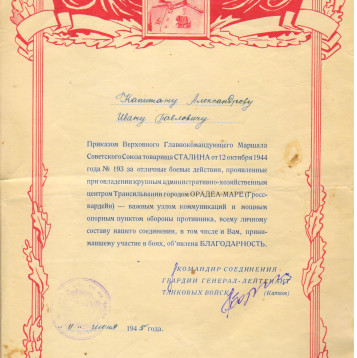 Капитану Александрову
Ивану Павловичу
Приказом Верховного Главнокомандующего Маршала
Советского Союза товарища СТАЛИНА от 12 октября 1944
года № 193 за отличные боевые действия, проявленные
при овладении крупным административно-хозяйственным
центром Трансильвании городом ОРАДЕА-МАРЕ (Гросс-
вардейн) — важным узлом коммуникаций и мощным
опорным пунктом обороны противника, всему личному
составу нашего соединения, в том числе и Вам, прини-
мавшему участие в боях, об'явлена БЛАГОДАРНОСТЬ.
КОМАНДИР СОЕДИНЕНИЯ
ГВАРДИИ ГЕНЕРАЛ-ЛЕЙТЕНАНТ
ТАНКОВЫХ ВОЙСК
(Катков)
1945 года.